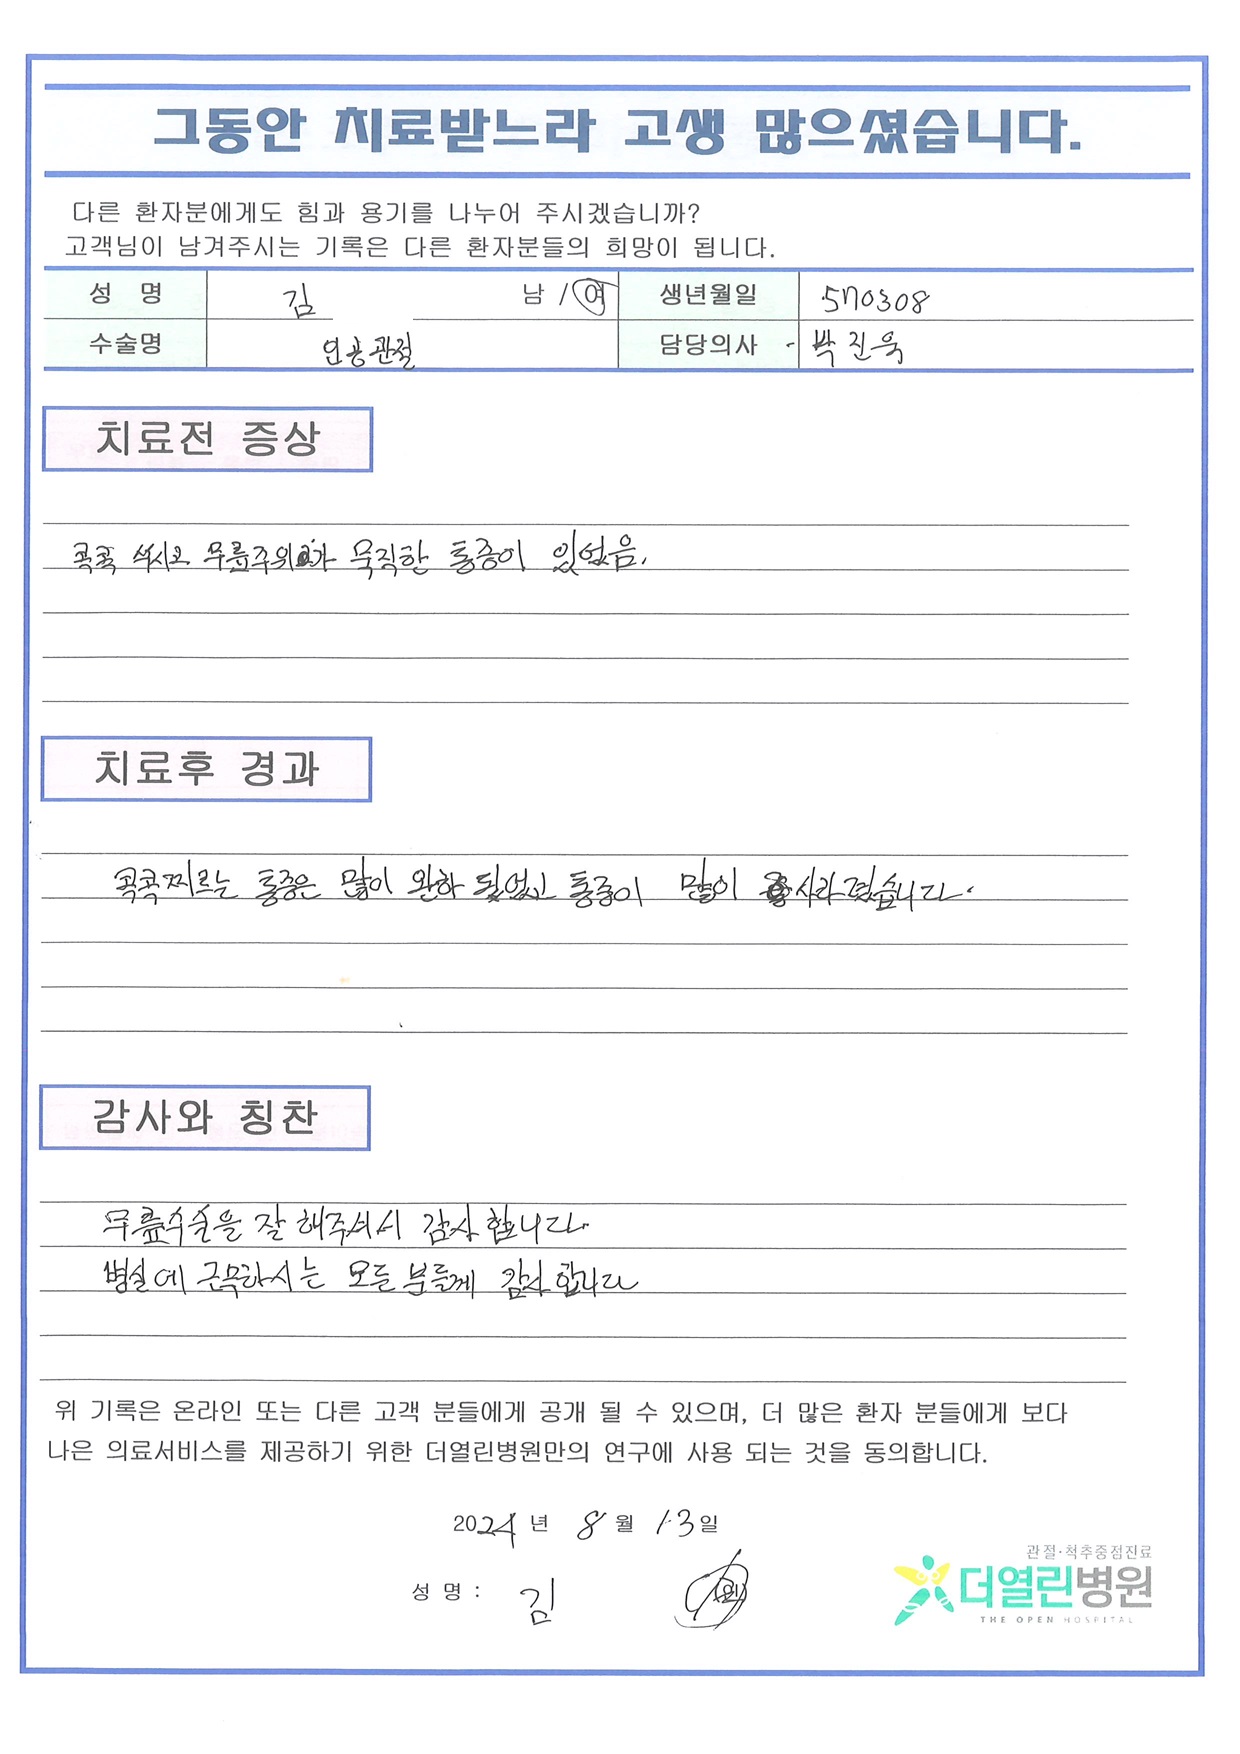 그동안 치료받느라 고생 많으셨습니다.
다른 환자분에게도 힘과 용기를 나누어 주시겠습니까?
고객님이 남겨주시는 기록은 다른 환자분들의 희망이 됩니다.
성 명 김 남 / 여 생년월일 570308
수술명 인공관절 담당의사 박진욱
치료전 증상
콕콕 쑤시고 무릎주위가 묵직한 통증이 있었음.
치료후 경과
콕콕찌르는 통증은 많이 완하 됬었고 통증이 많이 사라졌습니다.
감사와 칭찬
무릎수술을 잘 해주셔서 감사합니다.
병실에 근무하시는 모든 분들께 감사합니다
위 기록은 온라인 또는 다른 고객 분들에게 공개 될 수 있으며, 더 많은 환자 분들에게 보다
나은 의료서비스를 제공하기 위한 더열린병원만의 연구에 사용 되는 것을 동의합니다.
2024 년 8 월 13일
성 명 : 김 (인)
관절·척추중점진료
더열린병원
THE OPEN HOSPITAL